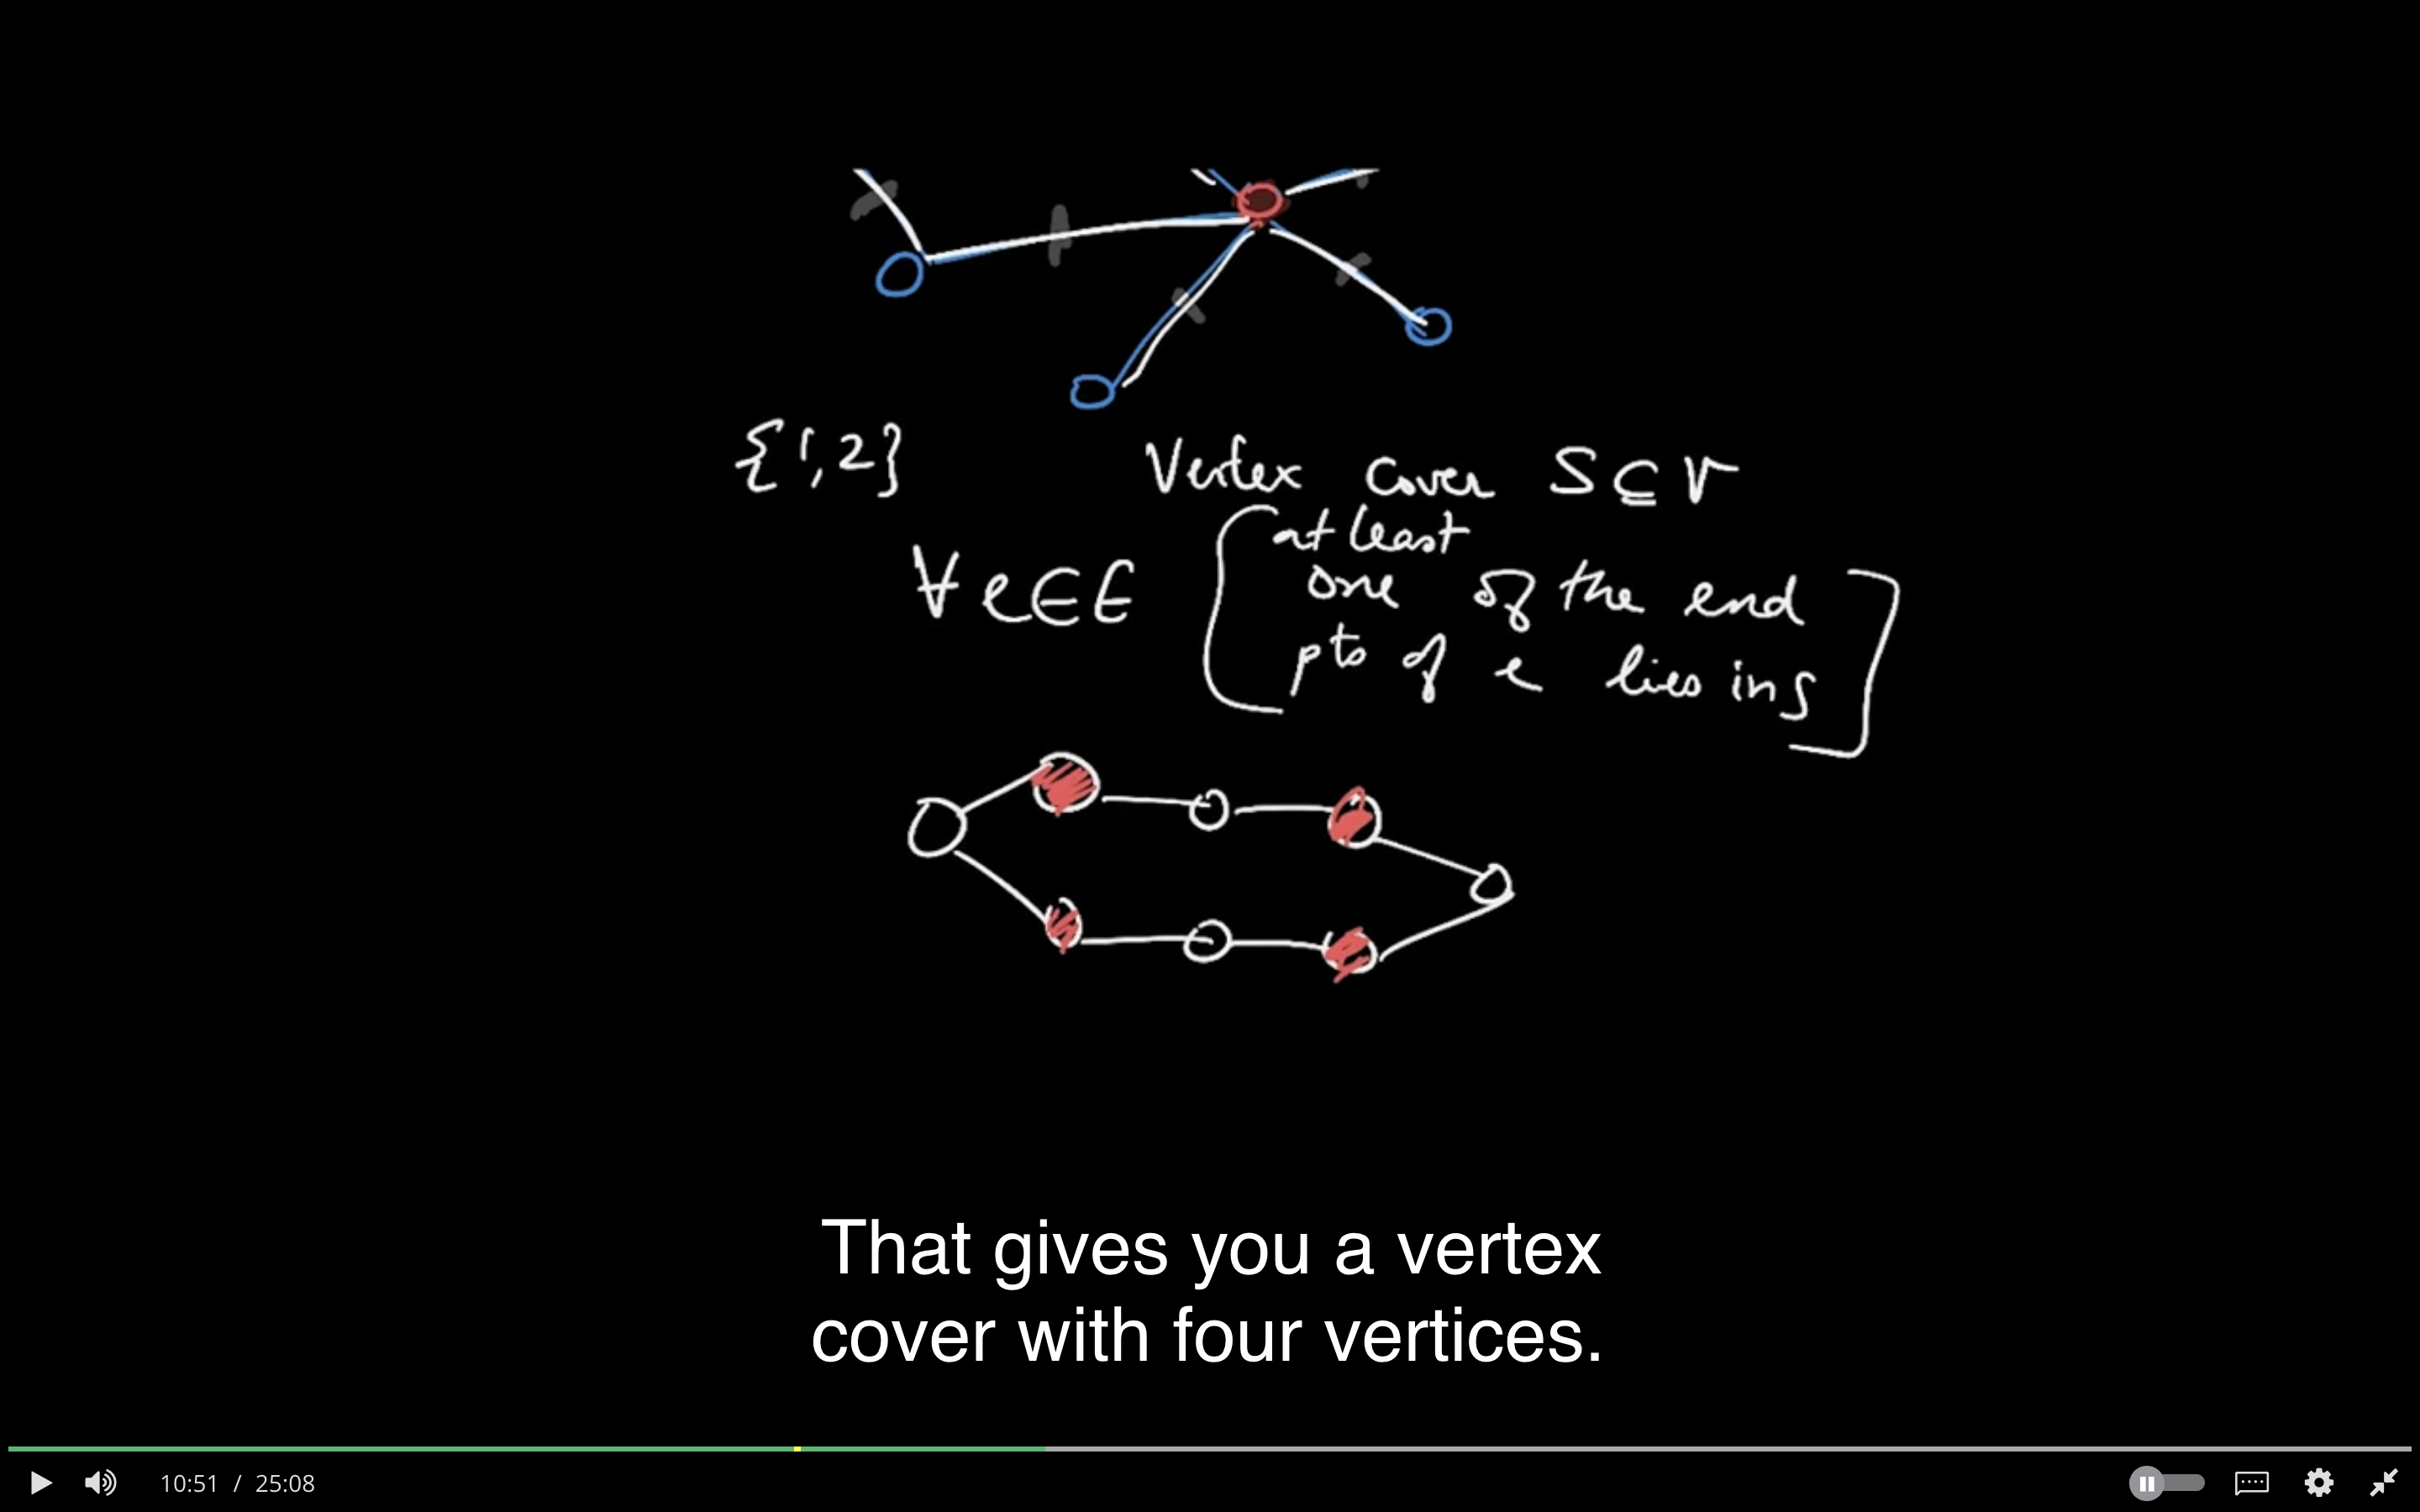 {1,2}
Vertex Cover S ⊆ V
∀ e ∈ E
at least
one of the end
pts of e lies in S
That gives you a vertex
cover with four vertices.
10:51 / 25:08